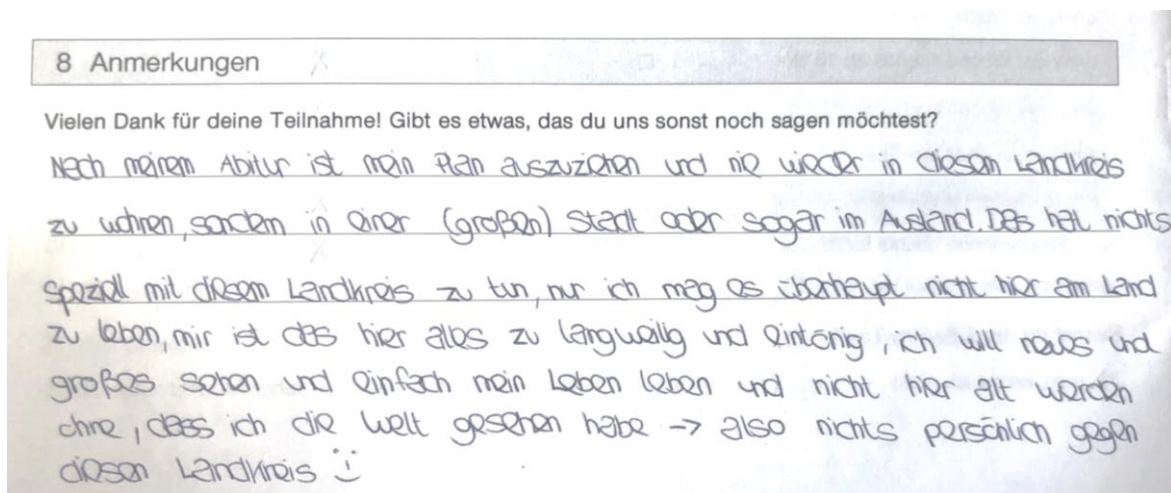 8 Anmerkungen
Vielen Dank für deine Teilnahme! Gibt es etwas, das du uns sonst noch sagen möchtest?
Nach meinem Abitur ist mein Plan auszuziehen und nie wieder in diesem Landkreis
zu wohnen, sondern in einer (großen) Stadt oder sogar im Ausland. Das hat nichts
speziell mit diesem Landkreis zu tun, nur ich mag es überhaupt nicht hier am Land
zu leben, mir ist das hier alles zu langweilig und eintönig, ich will neues und
großes sehen und einfach mein Leben leben und nicht hier alt werden
ohne, dass ich die Welt gesehen habe -> also nichts persönlich gegen
diesen Landkreis :)